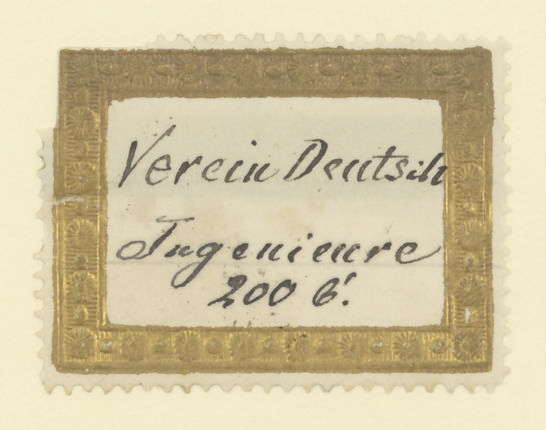 Verein Deutsch
Ingenieure
200 6'.